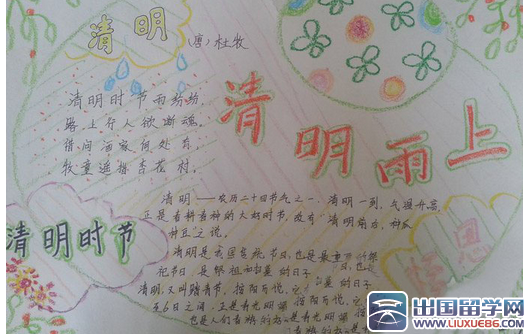 清明
(唐)杜牧
清明时节雨纷纷
路上行人欲断魂。
借问酒家何处有,
牧童遥指杏花村。
清明雨上
清明——农历二十四节气之一。清明一到,气温升高,
正是春耕春种的大好时节,故有“清明前后,种瓜
种豆”之说。
清明时节
清明是我国传统节日,也是最重要的祭
祀节日,是祭祖和扫墓的日子
清明,又叫踏青节,按阳历说,它
至6日之间,正是春光明媚
也是人们春游的
出国留学网
www.liuxue86.com